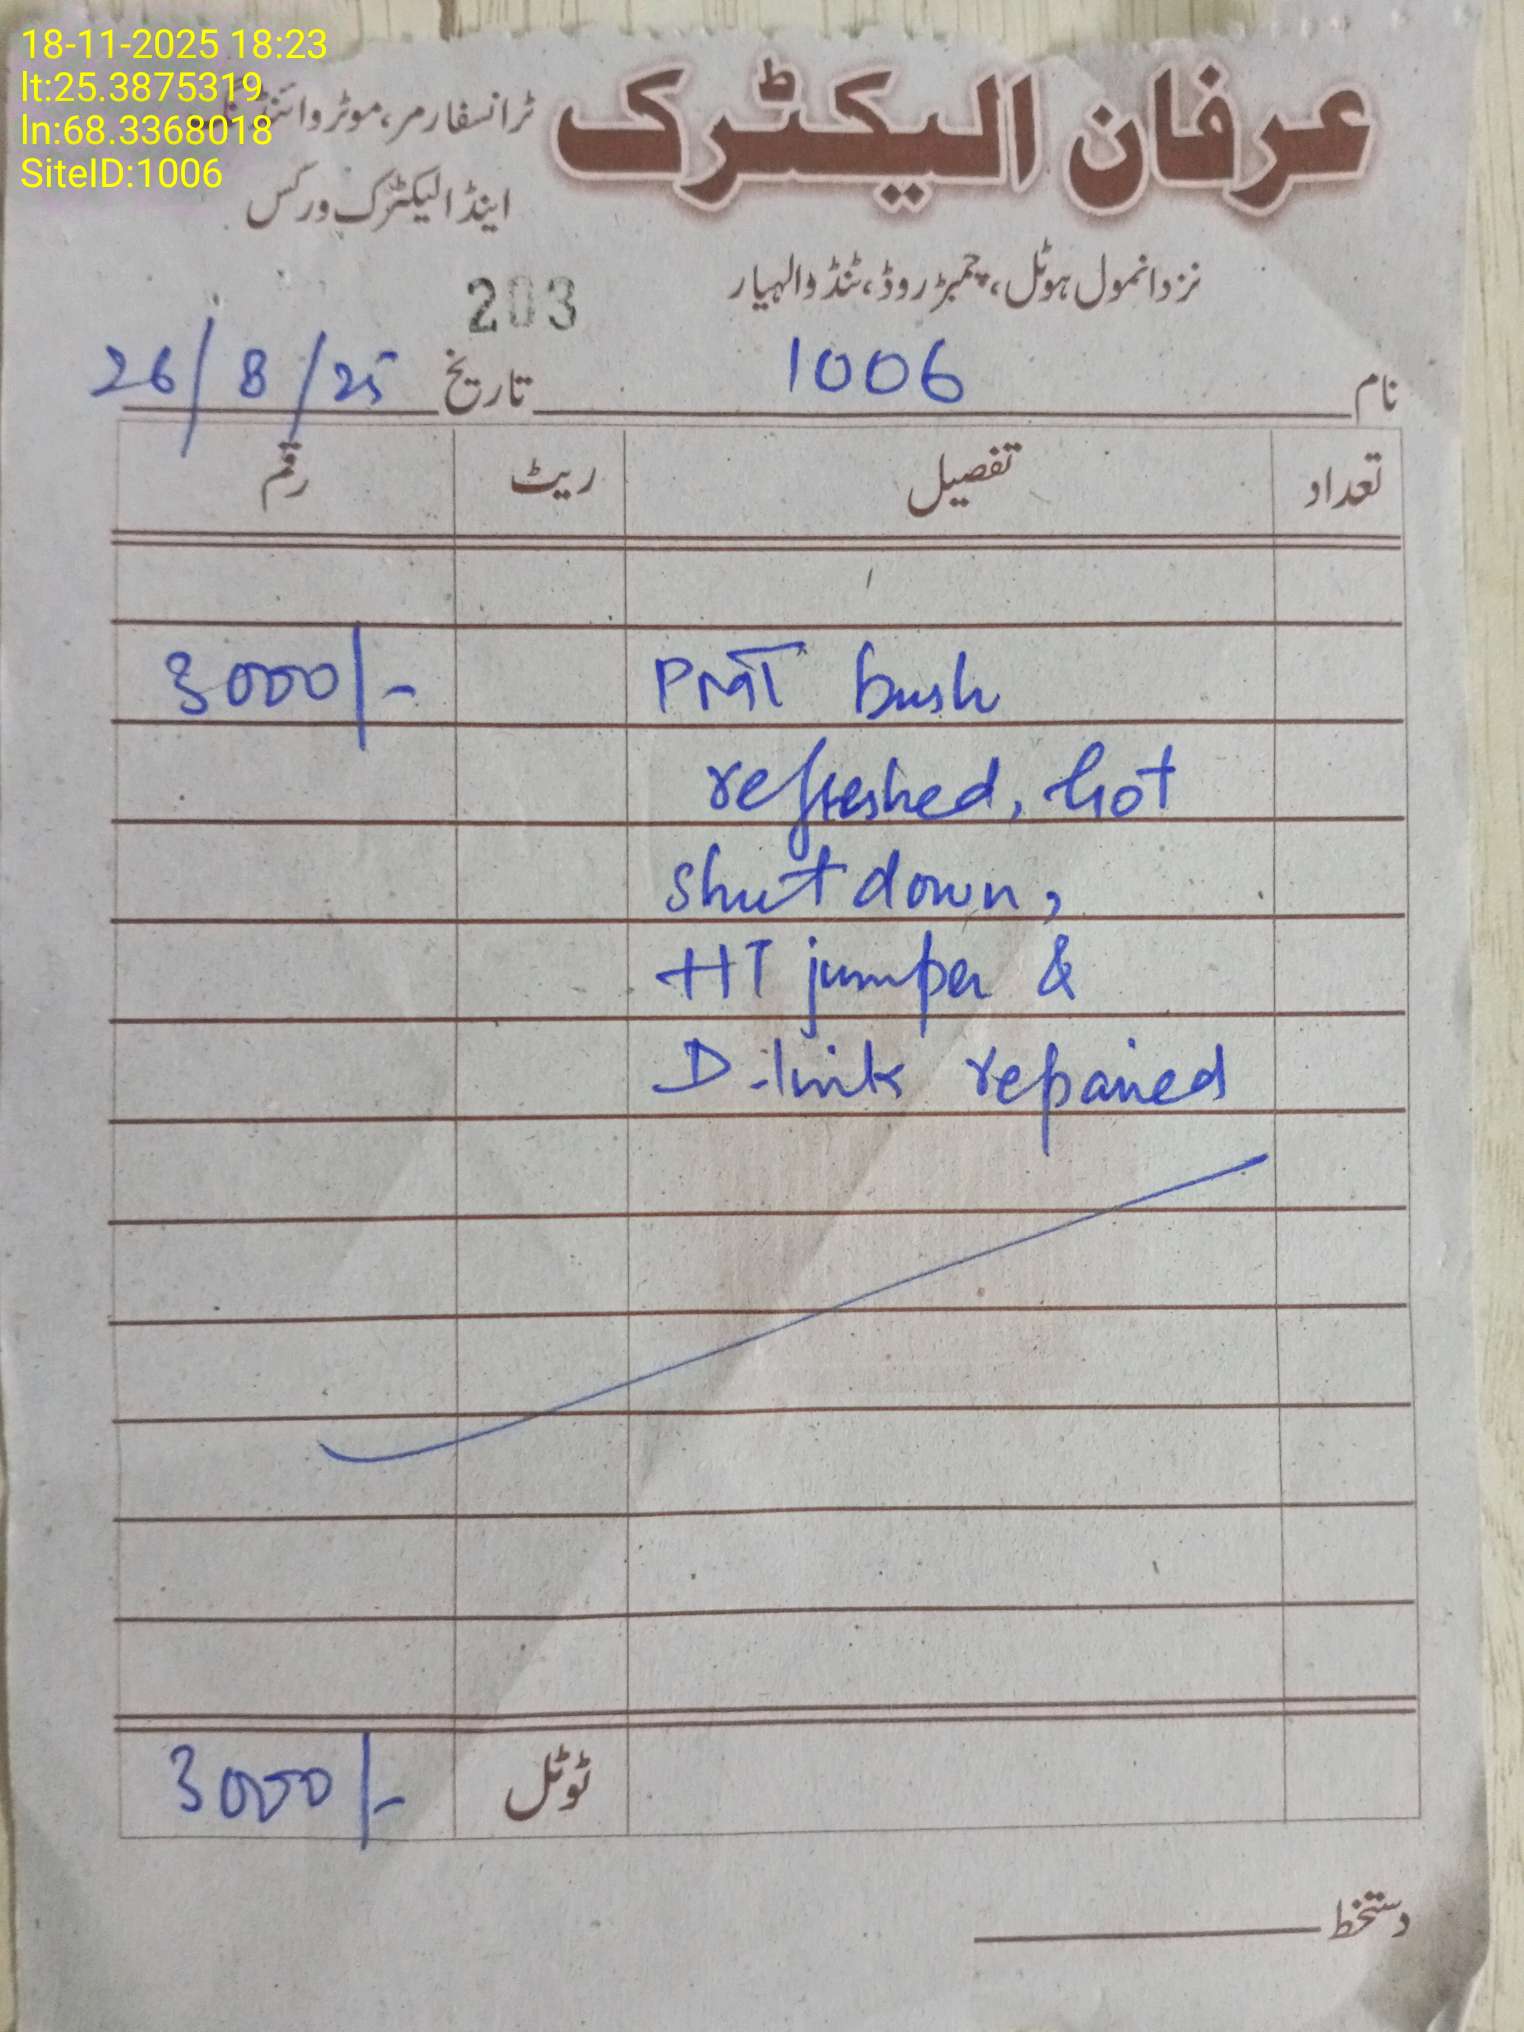 18-11-2025 18:23
lt:25.3875319
ln:68.3368018
SiteID:1006
عرفان الیکٹرک
ٹرانسفارمر، موٹر وائنڈنگ
اینڈ الیکٹرک ورکس
نزد انمول ہوٹل، چمبڑ روڈ، ٹنڈوالہیار
203
نام 1006 تاریخ 26/8/25
تعداد تفصیل ریٹ رقم
PMT bush 3000/-
refreshed, hot
shutdown,
HT jumper &
D-link repaired
ٹوٹل 3000/-
دستخط